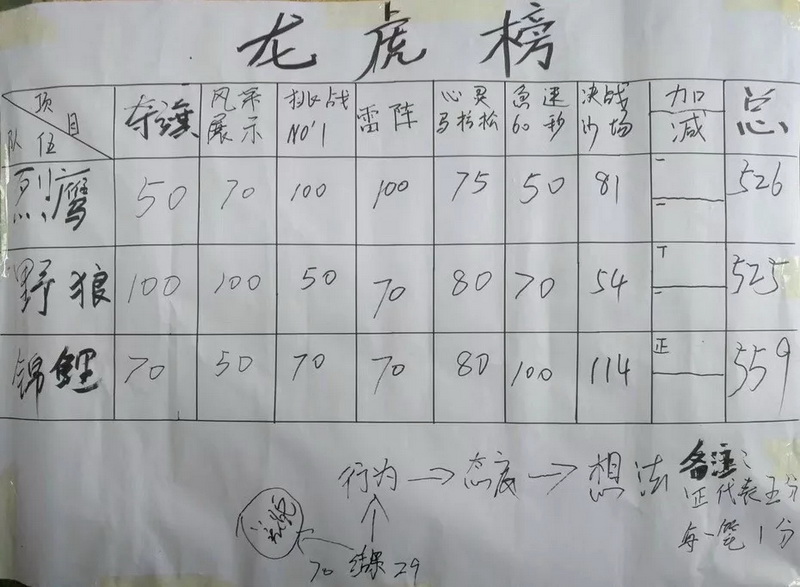 龙虎榜
项目
队伍
夺旗 风采展示 挑战NO'1 雷阵 心灵马拉松 急速60秒 决战沙场 加 减 总
烈鹰 50 70 100 100 75 50 81 一 二 526
野狼 100 100 50 70 80 70 54 T 一 525
锦鲤 70 50 70 70 80 100 114 正 559
行为→态度→想法
备注:
正代表五分
每一笔1分
70 结果 29